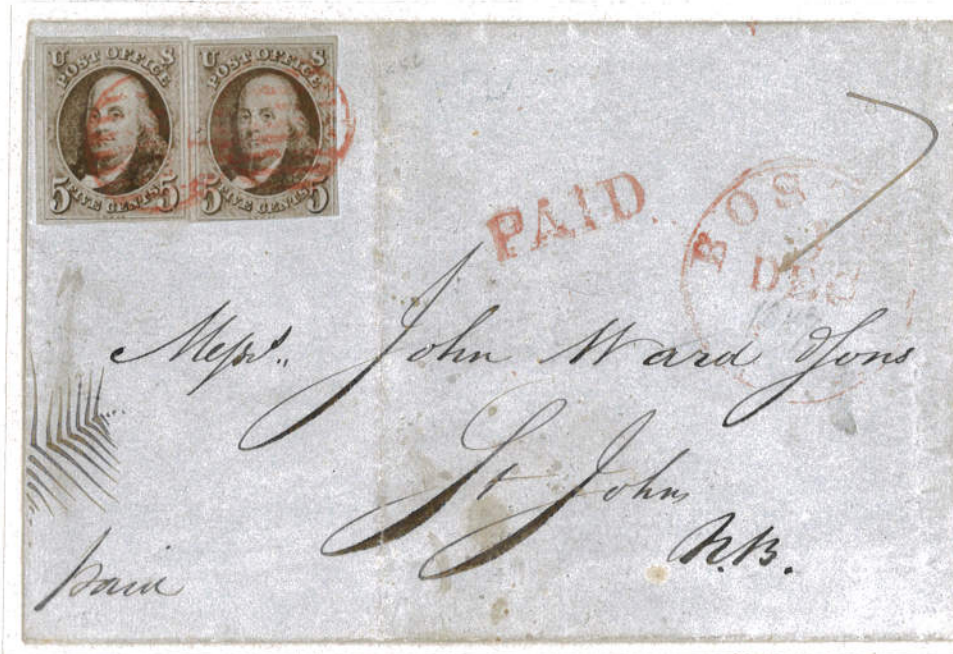 U S
POST OFFICE
5 FIVE CENTS 5
U S
POST OFFICE
5 FIVE CENTS 5
PAID
BOS
DEC
Mess.rs John Ward & Sons
St John
N.B.
paid